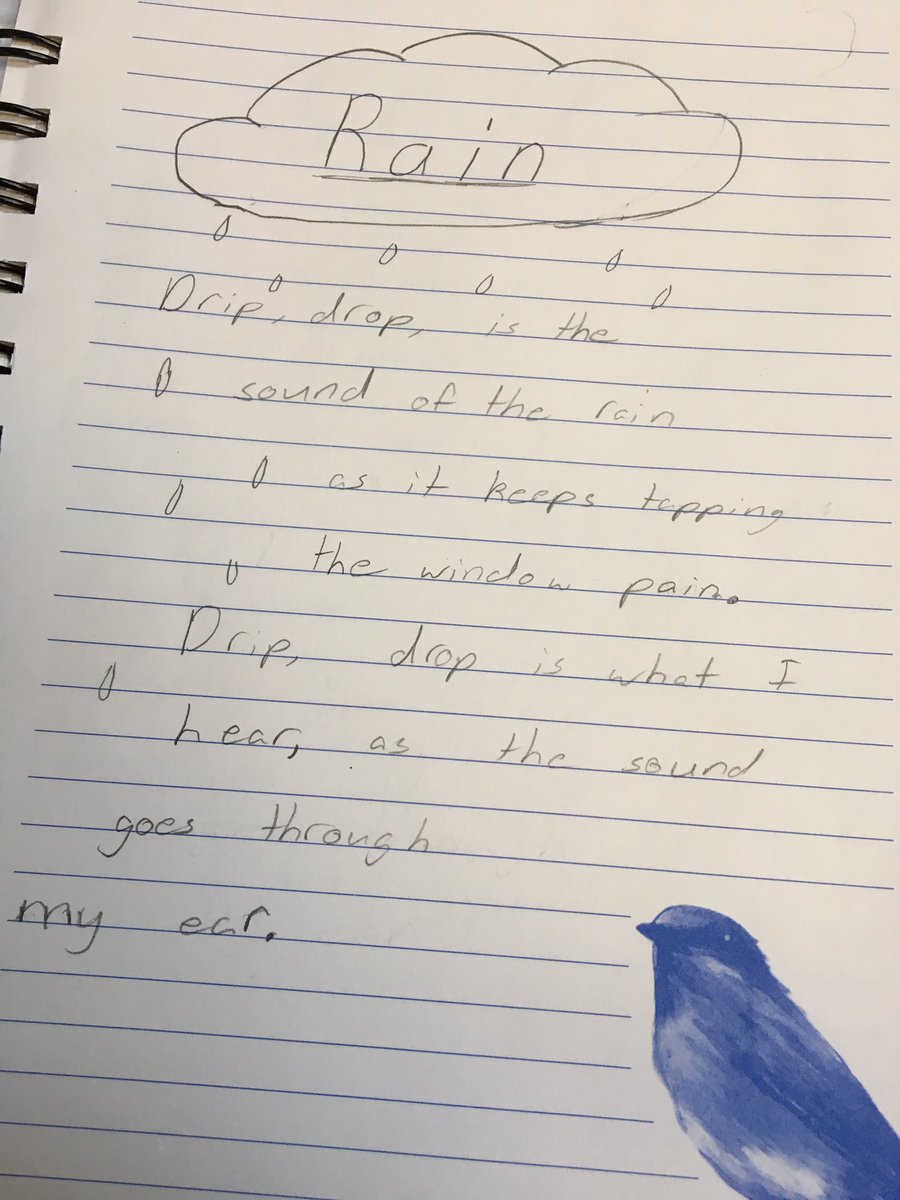 Rain
Drip, drop, is the
sound of the rain
as it keeps tapping
the window pain.
Drip, drop is what I
hear, as the sound
goes through
my ear.